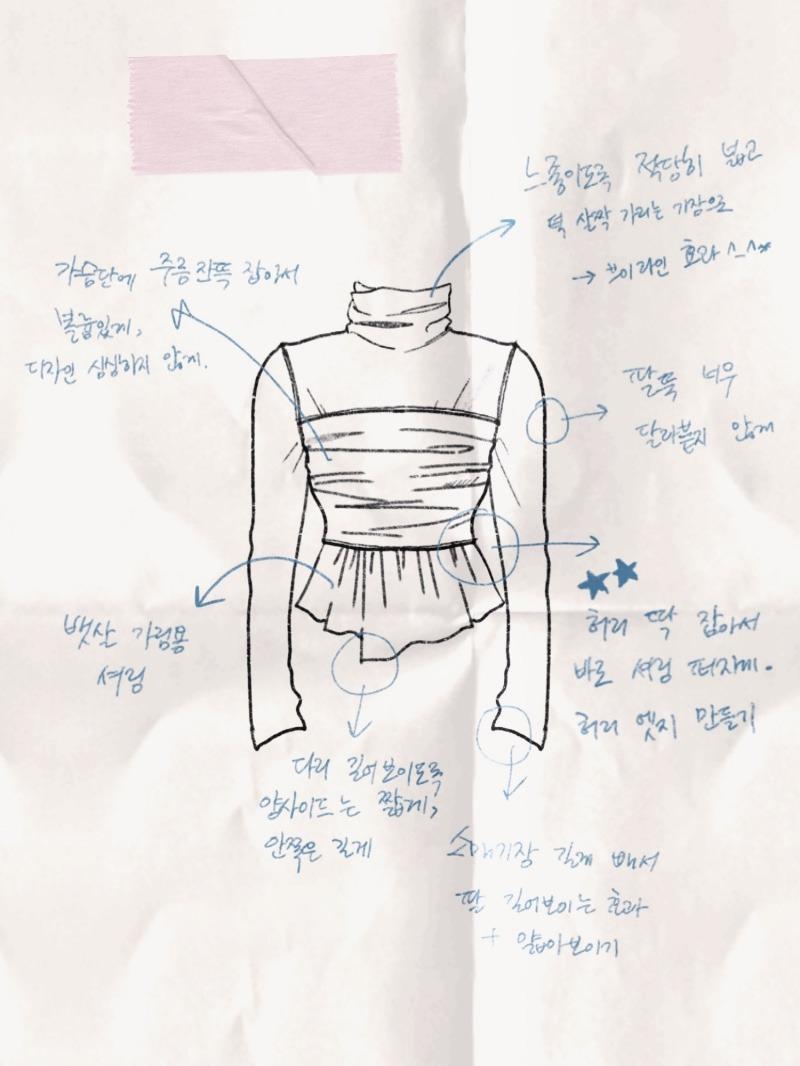 느좋이도록 적당히 넓고
턱 살짝 가리는 기장으로
→ 브이라인 효과 ^_^*
가슴단에 주름 잔뜩 잡아서
볼륨있게,
디자인 심심하지 않게.
팔뚝 너무
달라붙지 않게
★★
허리 딱 잡아서
바로 셔링 퍼지게.
허리 엣지 만들기
뱃살 가림용
셔링
다리 길어보이도록
양사이드는 짧게,
안쪽은 길게
소매기장 길게 빼서
팔 길어보이는 효과
+ 얇아보이기